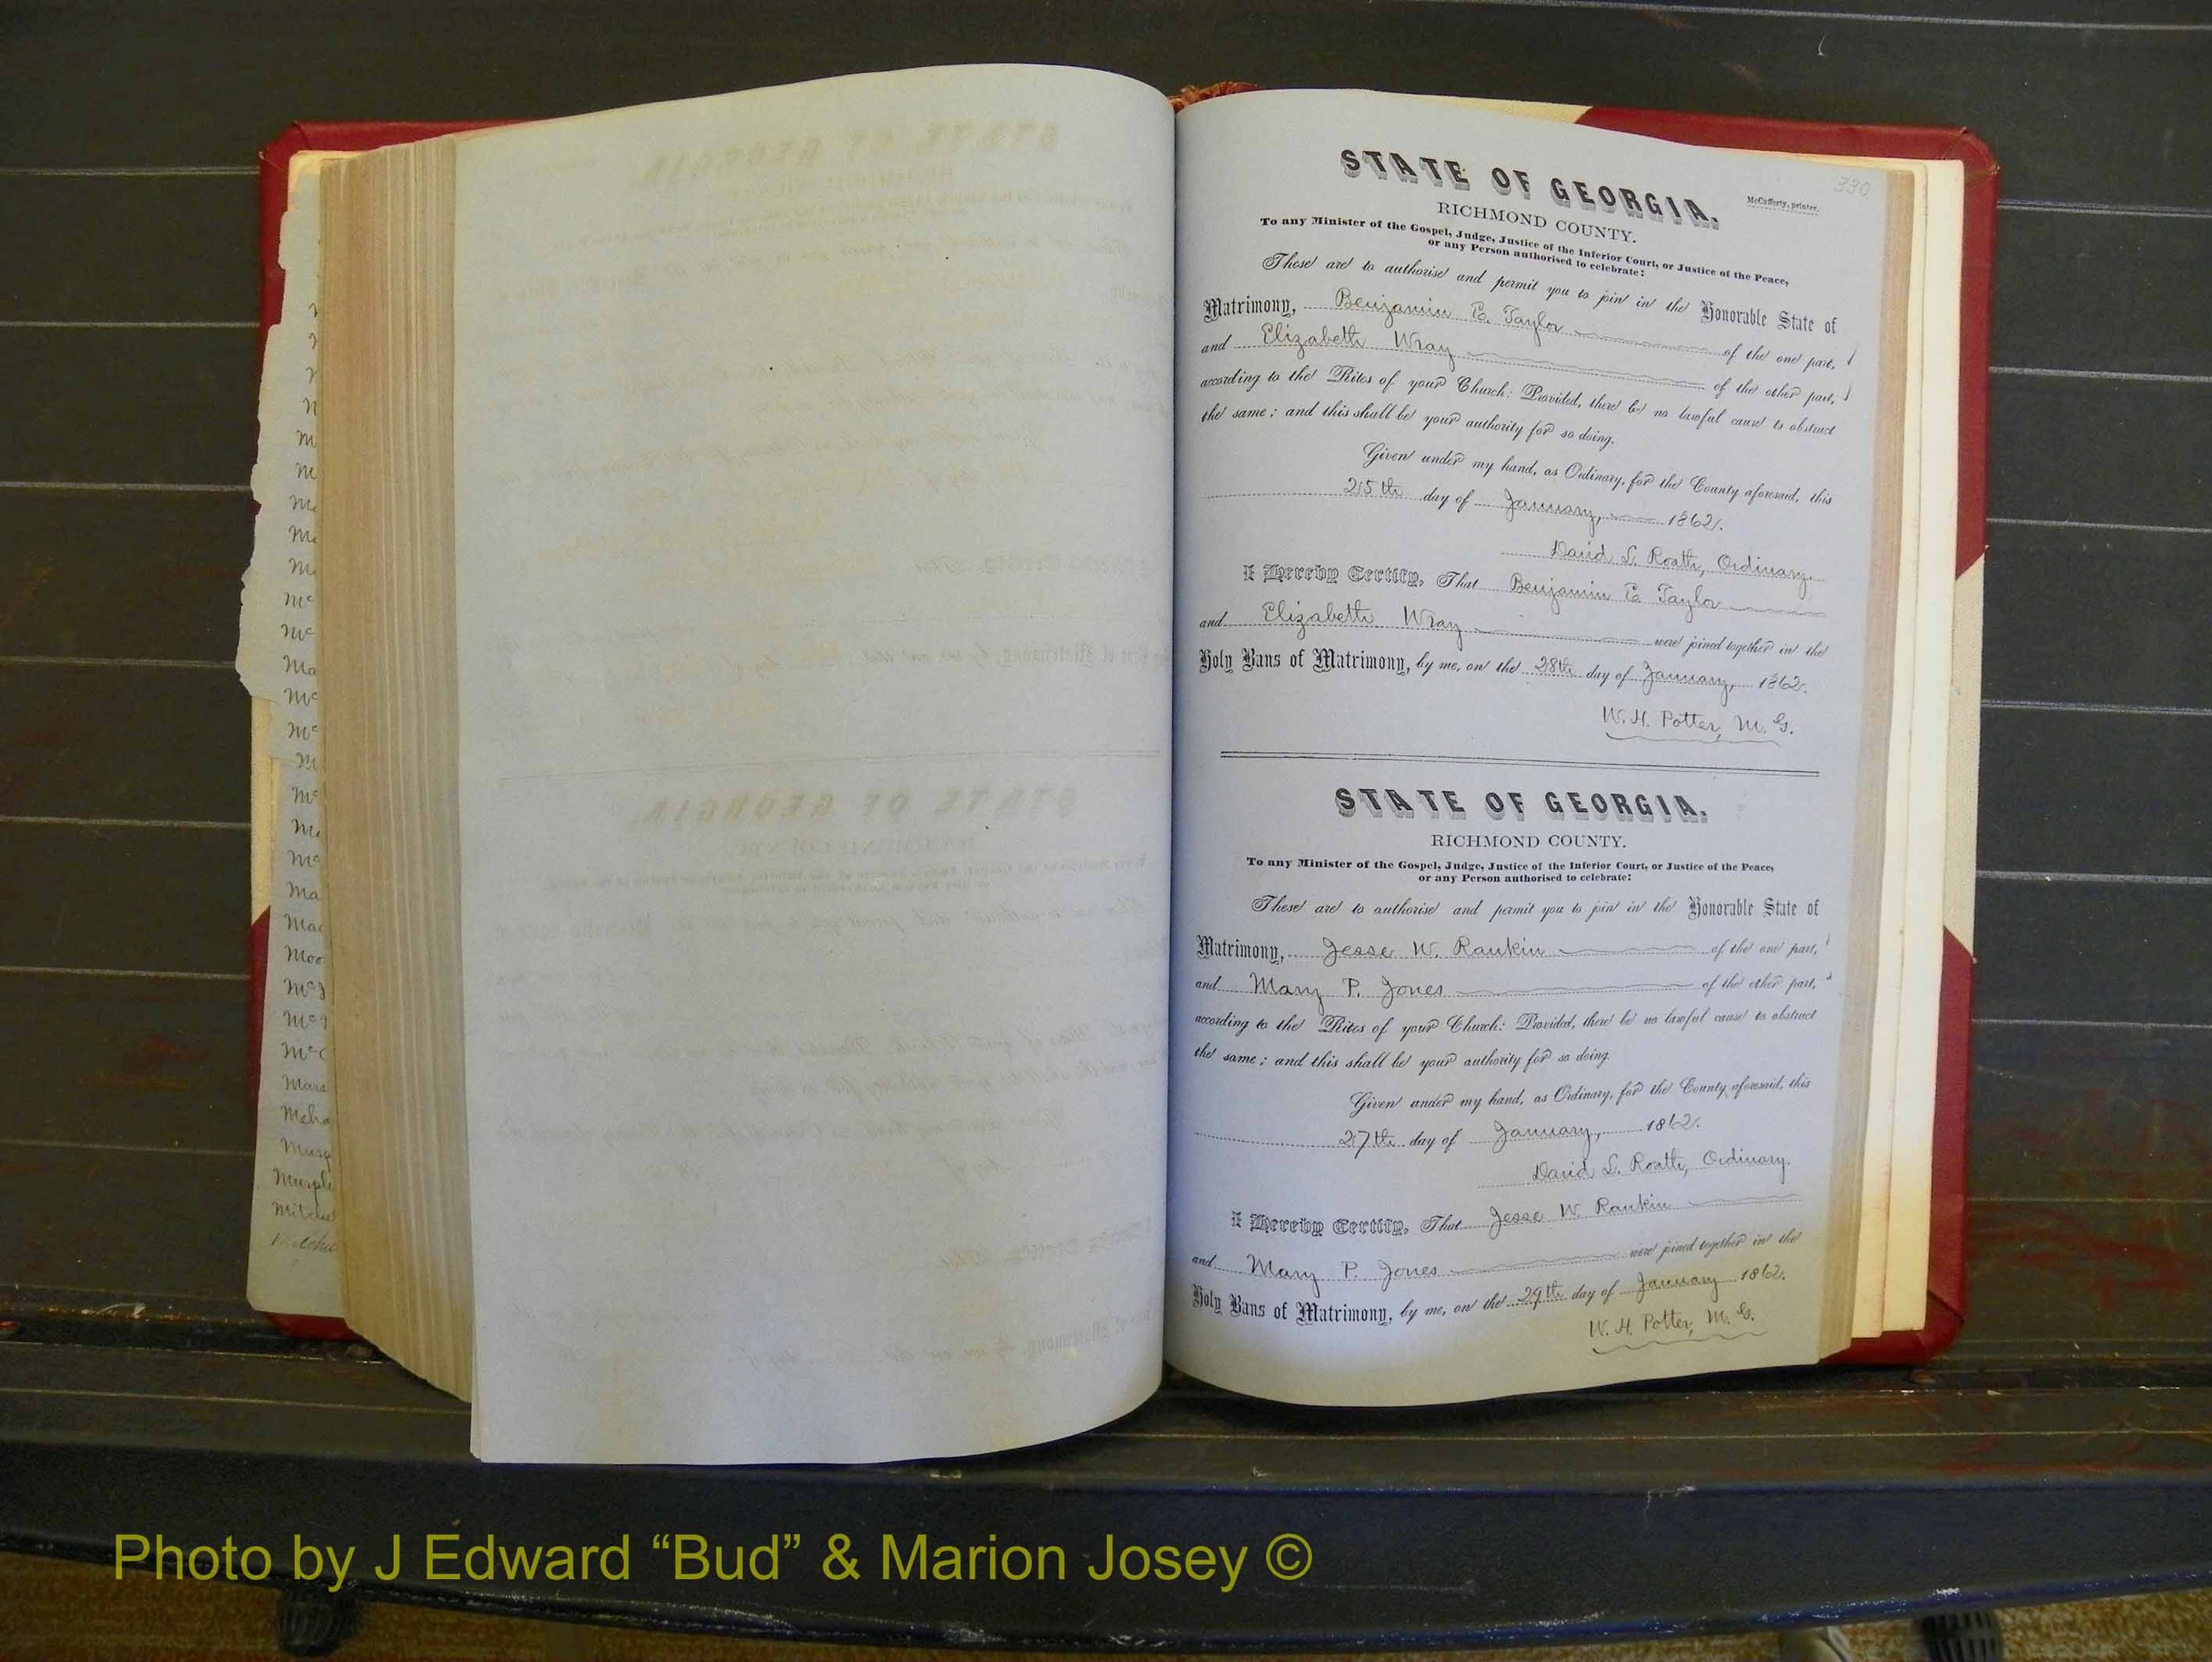 330
STATE OF GEORGIA.
McCafferty, printer.
RICHMOND COUNTY.
To any Minister of the Gospel, Judge, Justice of the Inferior Court, or Justice of the Peace,
or any Person authorised to celebrate:
These are to authorise and permit you to join in the Honorable State of
Matrimony, Benjamin E. Taylor of the one part,
and Elizabeth Wray of the other part,
according to the Rites of your Church: Provided, there be no lawful cause to obstruct
the same; and this shall be your authority for so doing.
Given under my hand, as Ordinary, for the County aforesaid, this
25th day of January, 1862.
David L. Roath, Ordinary.
I Hereby Certify, That Benjamin E. Taylor
and Elizabeth Wray were joined together in the
Holy Bans of Matrimony, by me, on the 28th day of January, 1862.
W. H. Potter, M. G.
STATE OF GEORGIA.
RICHMOND COUNTY.
To any Minister of the Gospel, Judge, Justice of the Inferior Court, or Justice of the Peace,
or any Person authorised to celebrate:
These are to authorise and permit you to join in the Honorable State of
Matrimony, Jesse W. Rankin of the one part,
and Mary P. Jones of the other part,
according to the Rites of your Church: Provided, there be no lawful cause to obstruct
the same; and this shall be your authority for so doing.
Given under my hand, as Ordinary, for the County aforesaid, this
27th day of January, 1862.
David L. Roath, Ordinary.
I Hereby Certify, That Jesse W. Rankin
and Mary P. Jones were joined together in the
Holy Bans of Matrimony, by me, on the 29th day of January 1862.
W. H. Potter, M. G.
Photo by J Edward “Bud” & Marion Josey ©